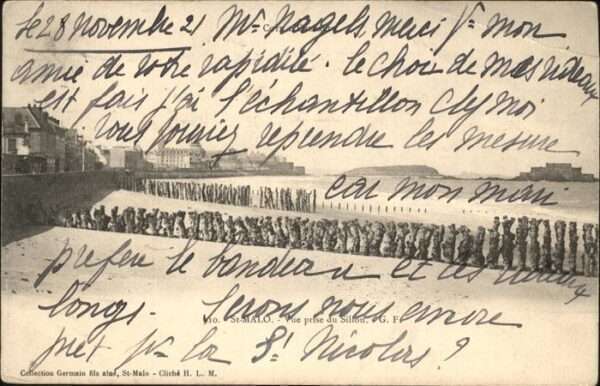 le 28 novembre 21 Mr Nagels merci pr mon
amie de votre rapidité. le choix de mes rideaux
est fais j'ai l'échantillon chez moi
vous pouvez reprendre les mesure
car mon mari
prefere le bandeau et les rideaux
longs. Serons nous encore
pret pr la St Nicolas ?
210. - St-MALO. - Vue prise du Sillon. - G. F.
Collection Germain fils aîné, St-Malo - Cliché H. L. M.